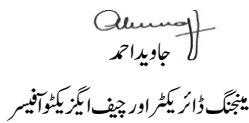 جاوید احمد
مینجنگ ڈائریکٹر اور چیف ایگزیکٹو آفیسر